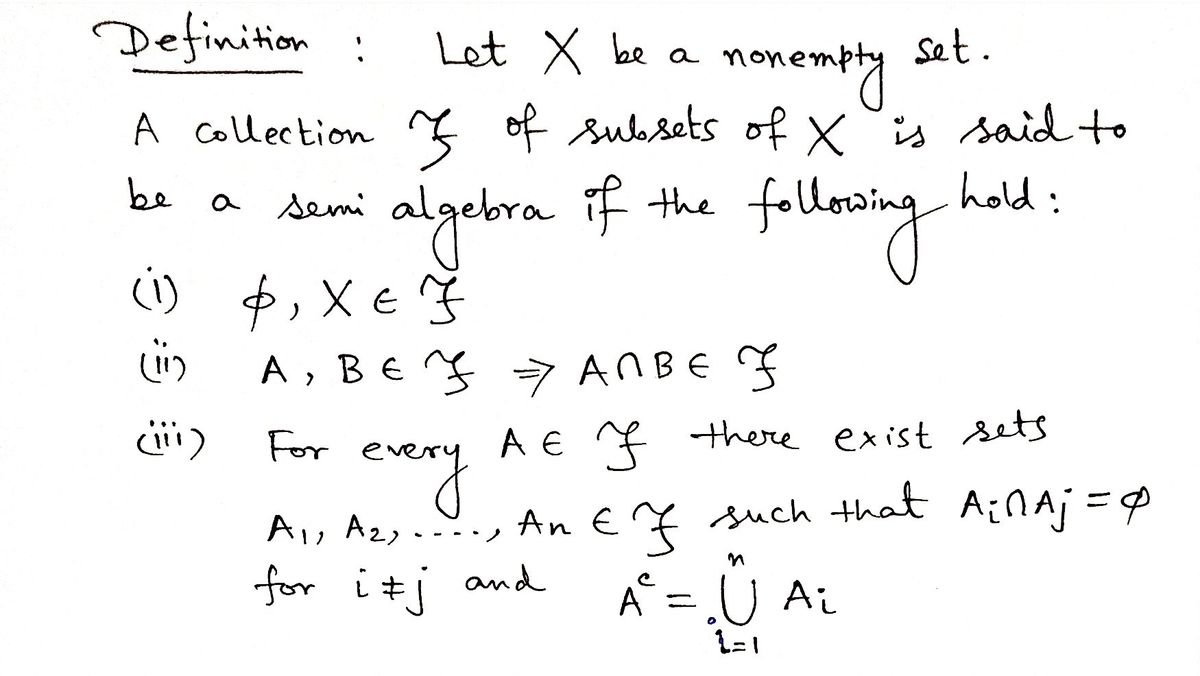 Definition : Let X be a nonempty set.
A collection ℱ of subsets of X is said to
be a semi algebra if the following hold:
(i) ϕ, X ∈ ℱ
(ii) A, B ∈ ℱ ⇒ A∩B ∈ ℱ
(iii) For every A ∈ ℱ there exist sets
A₁, A₂, ....., An ∈ ℱ such that Ai∩Aj = ϕ
for i ≠ j and Aᶜ = ⋃ⁿᵢ₌₁ Ai